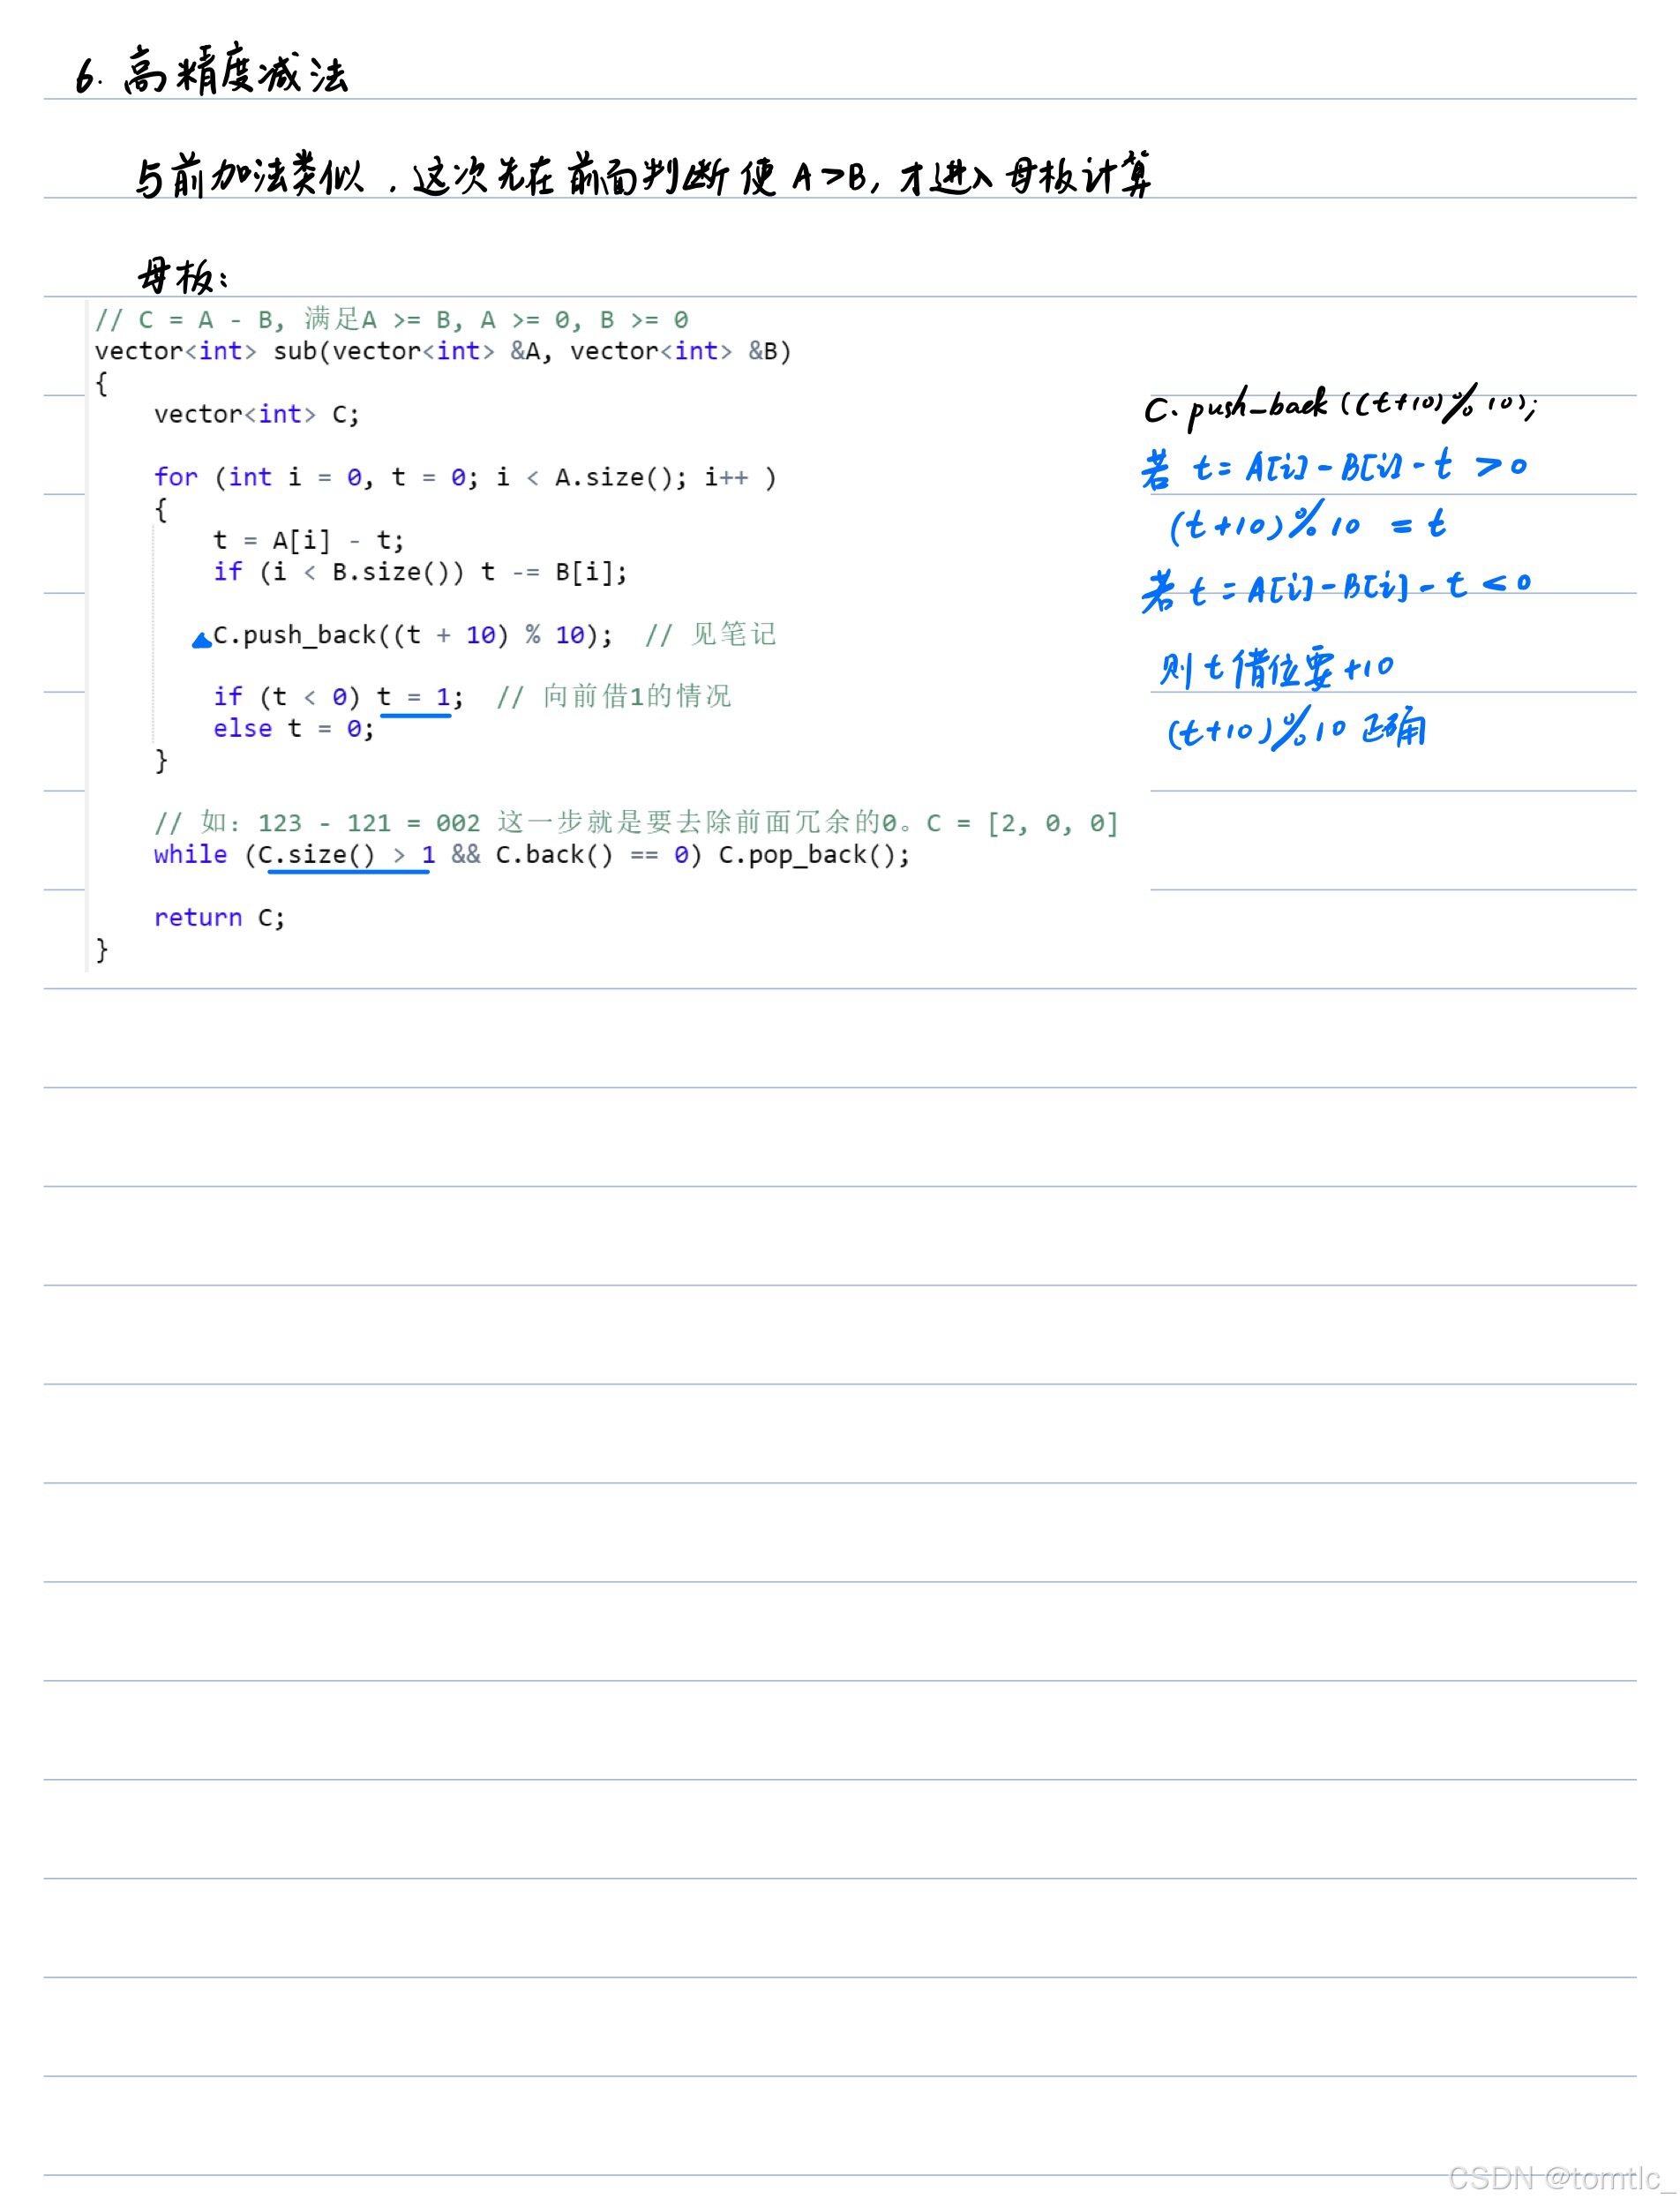 6. 高精度减法
与前加法类似，这次先在前面判断使 A>B, 才进入母板计算
母板：
// C = A - B, 满足A >= B, A >= 0, B >= 0
vector<int> sub(vector<int> &A, vector<int> &B)
{
    vector<int> C;
    for (int i = 0, t = 0; i < A.size(); i++ )
    {
        t = A[i] - t;
        if (i < B.size()) t -= B[i];
        C.push_back((t + 10) % 10);  // 见笔记
        if (t < 0) t = 1;  // 向前借1的情况
        else t = 0;
    }
    // 如：123 - 121 = 002 这一步就是要去除前面冗余的0。C = [2, 0, 0]
    while (C.size() > 1 && C.back() == 0) C.pop_back();
    return C;
}
C.push_back((t+10)%10);
若 t = A[i]-B[i]-t >0
(t+10)%10 = t
若 t = A[i]-B[i]-t <0
则 t 借位要+10
(t+10)%10 正确
CSDN @tomtlc_